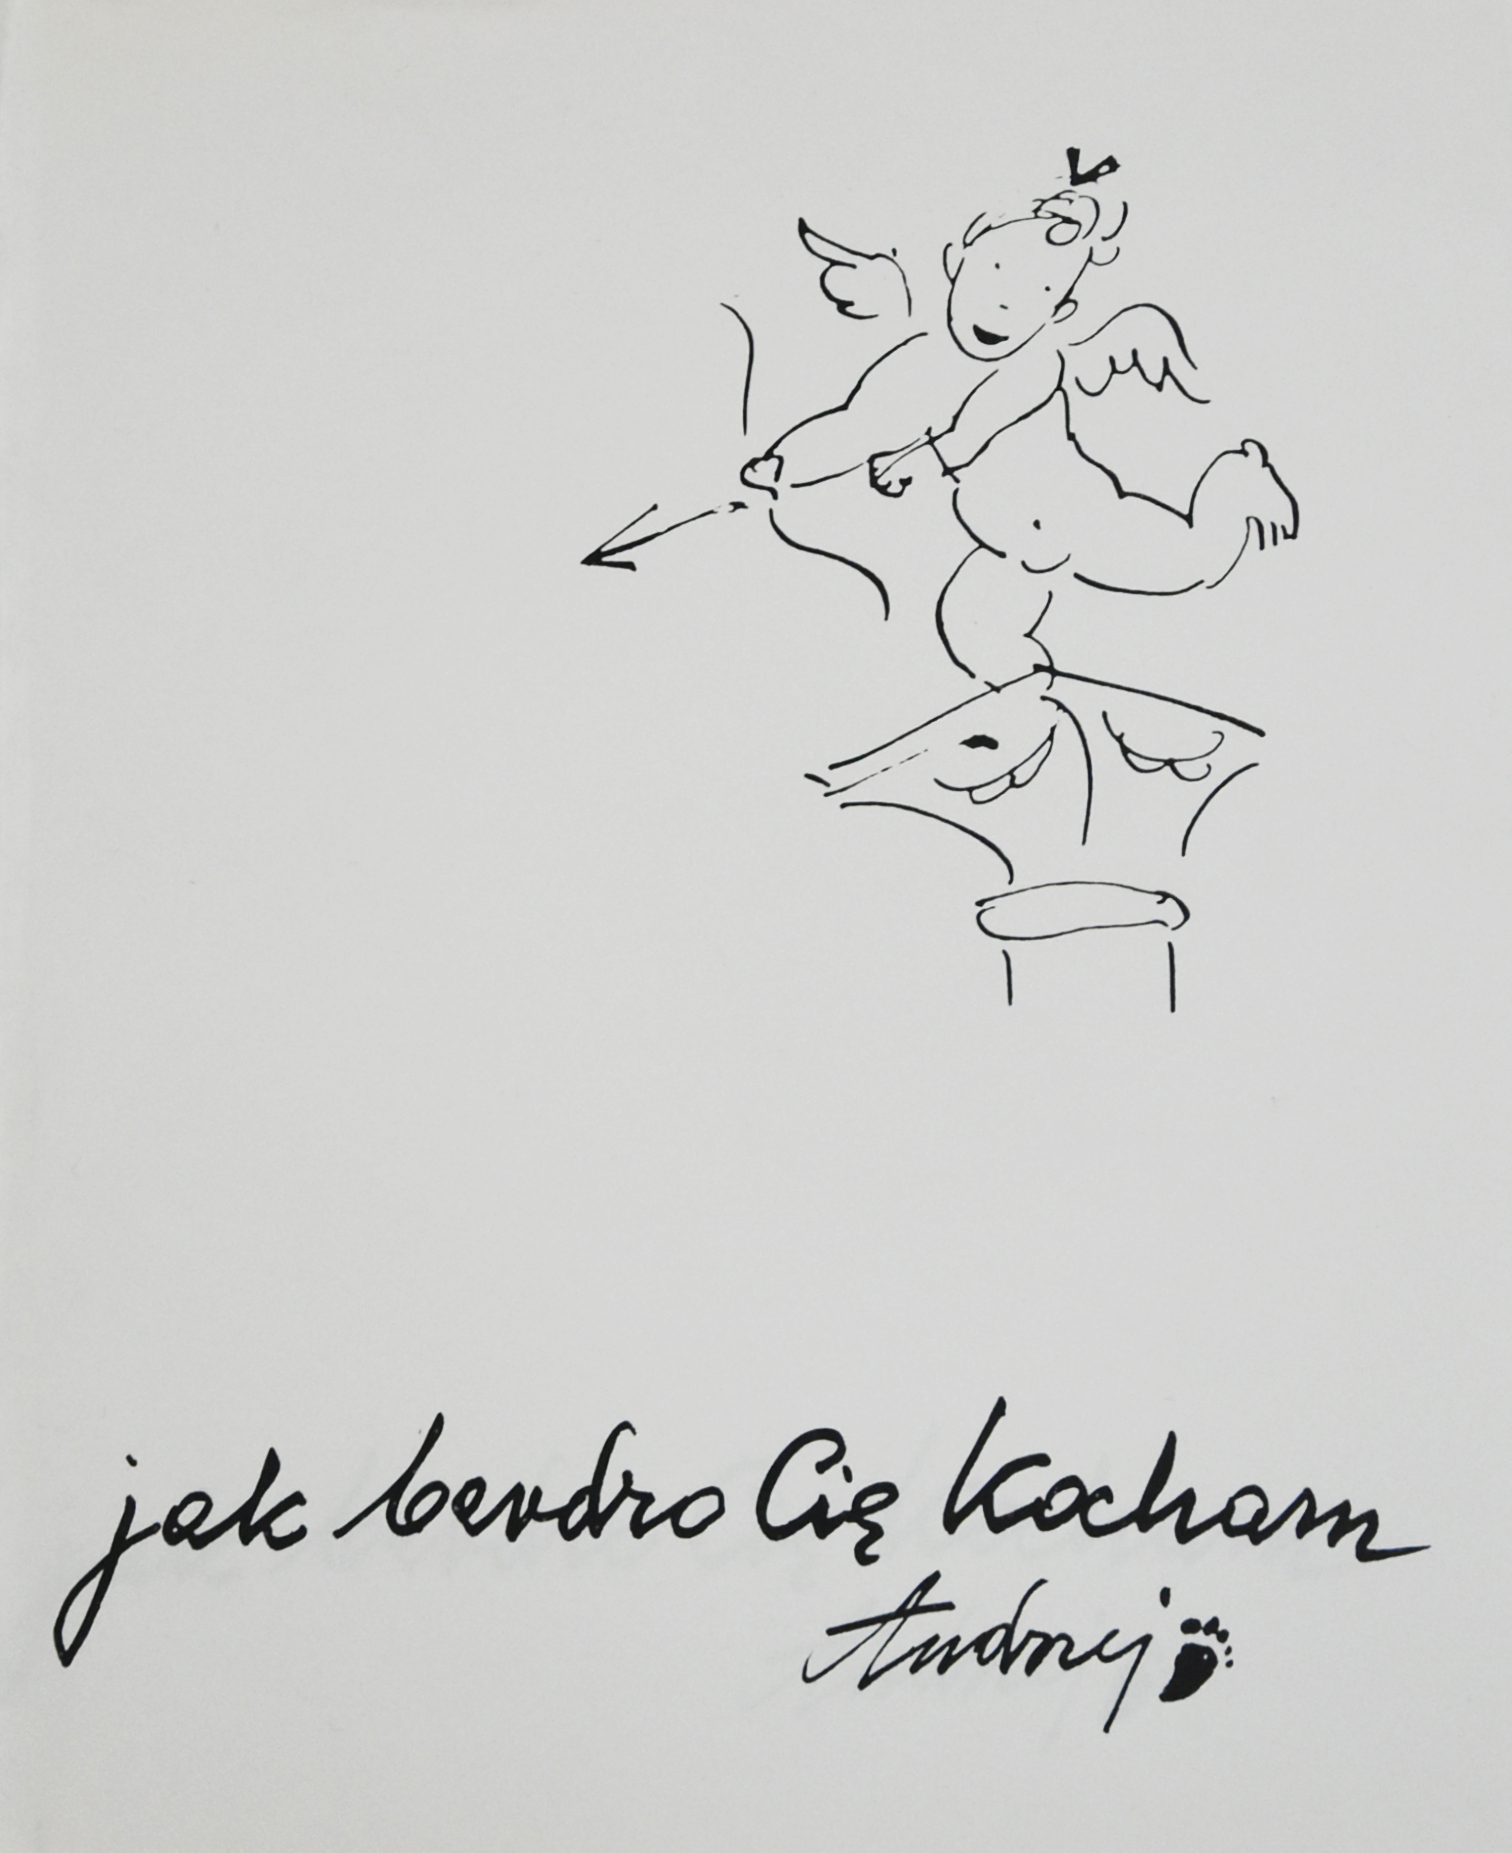 jak bardzo Cię Kocham
Andrzej